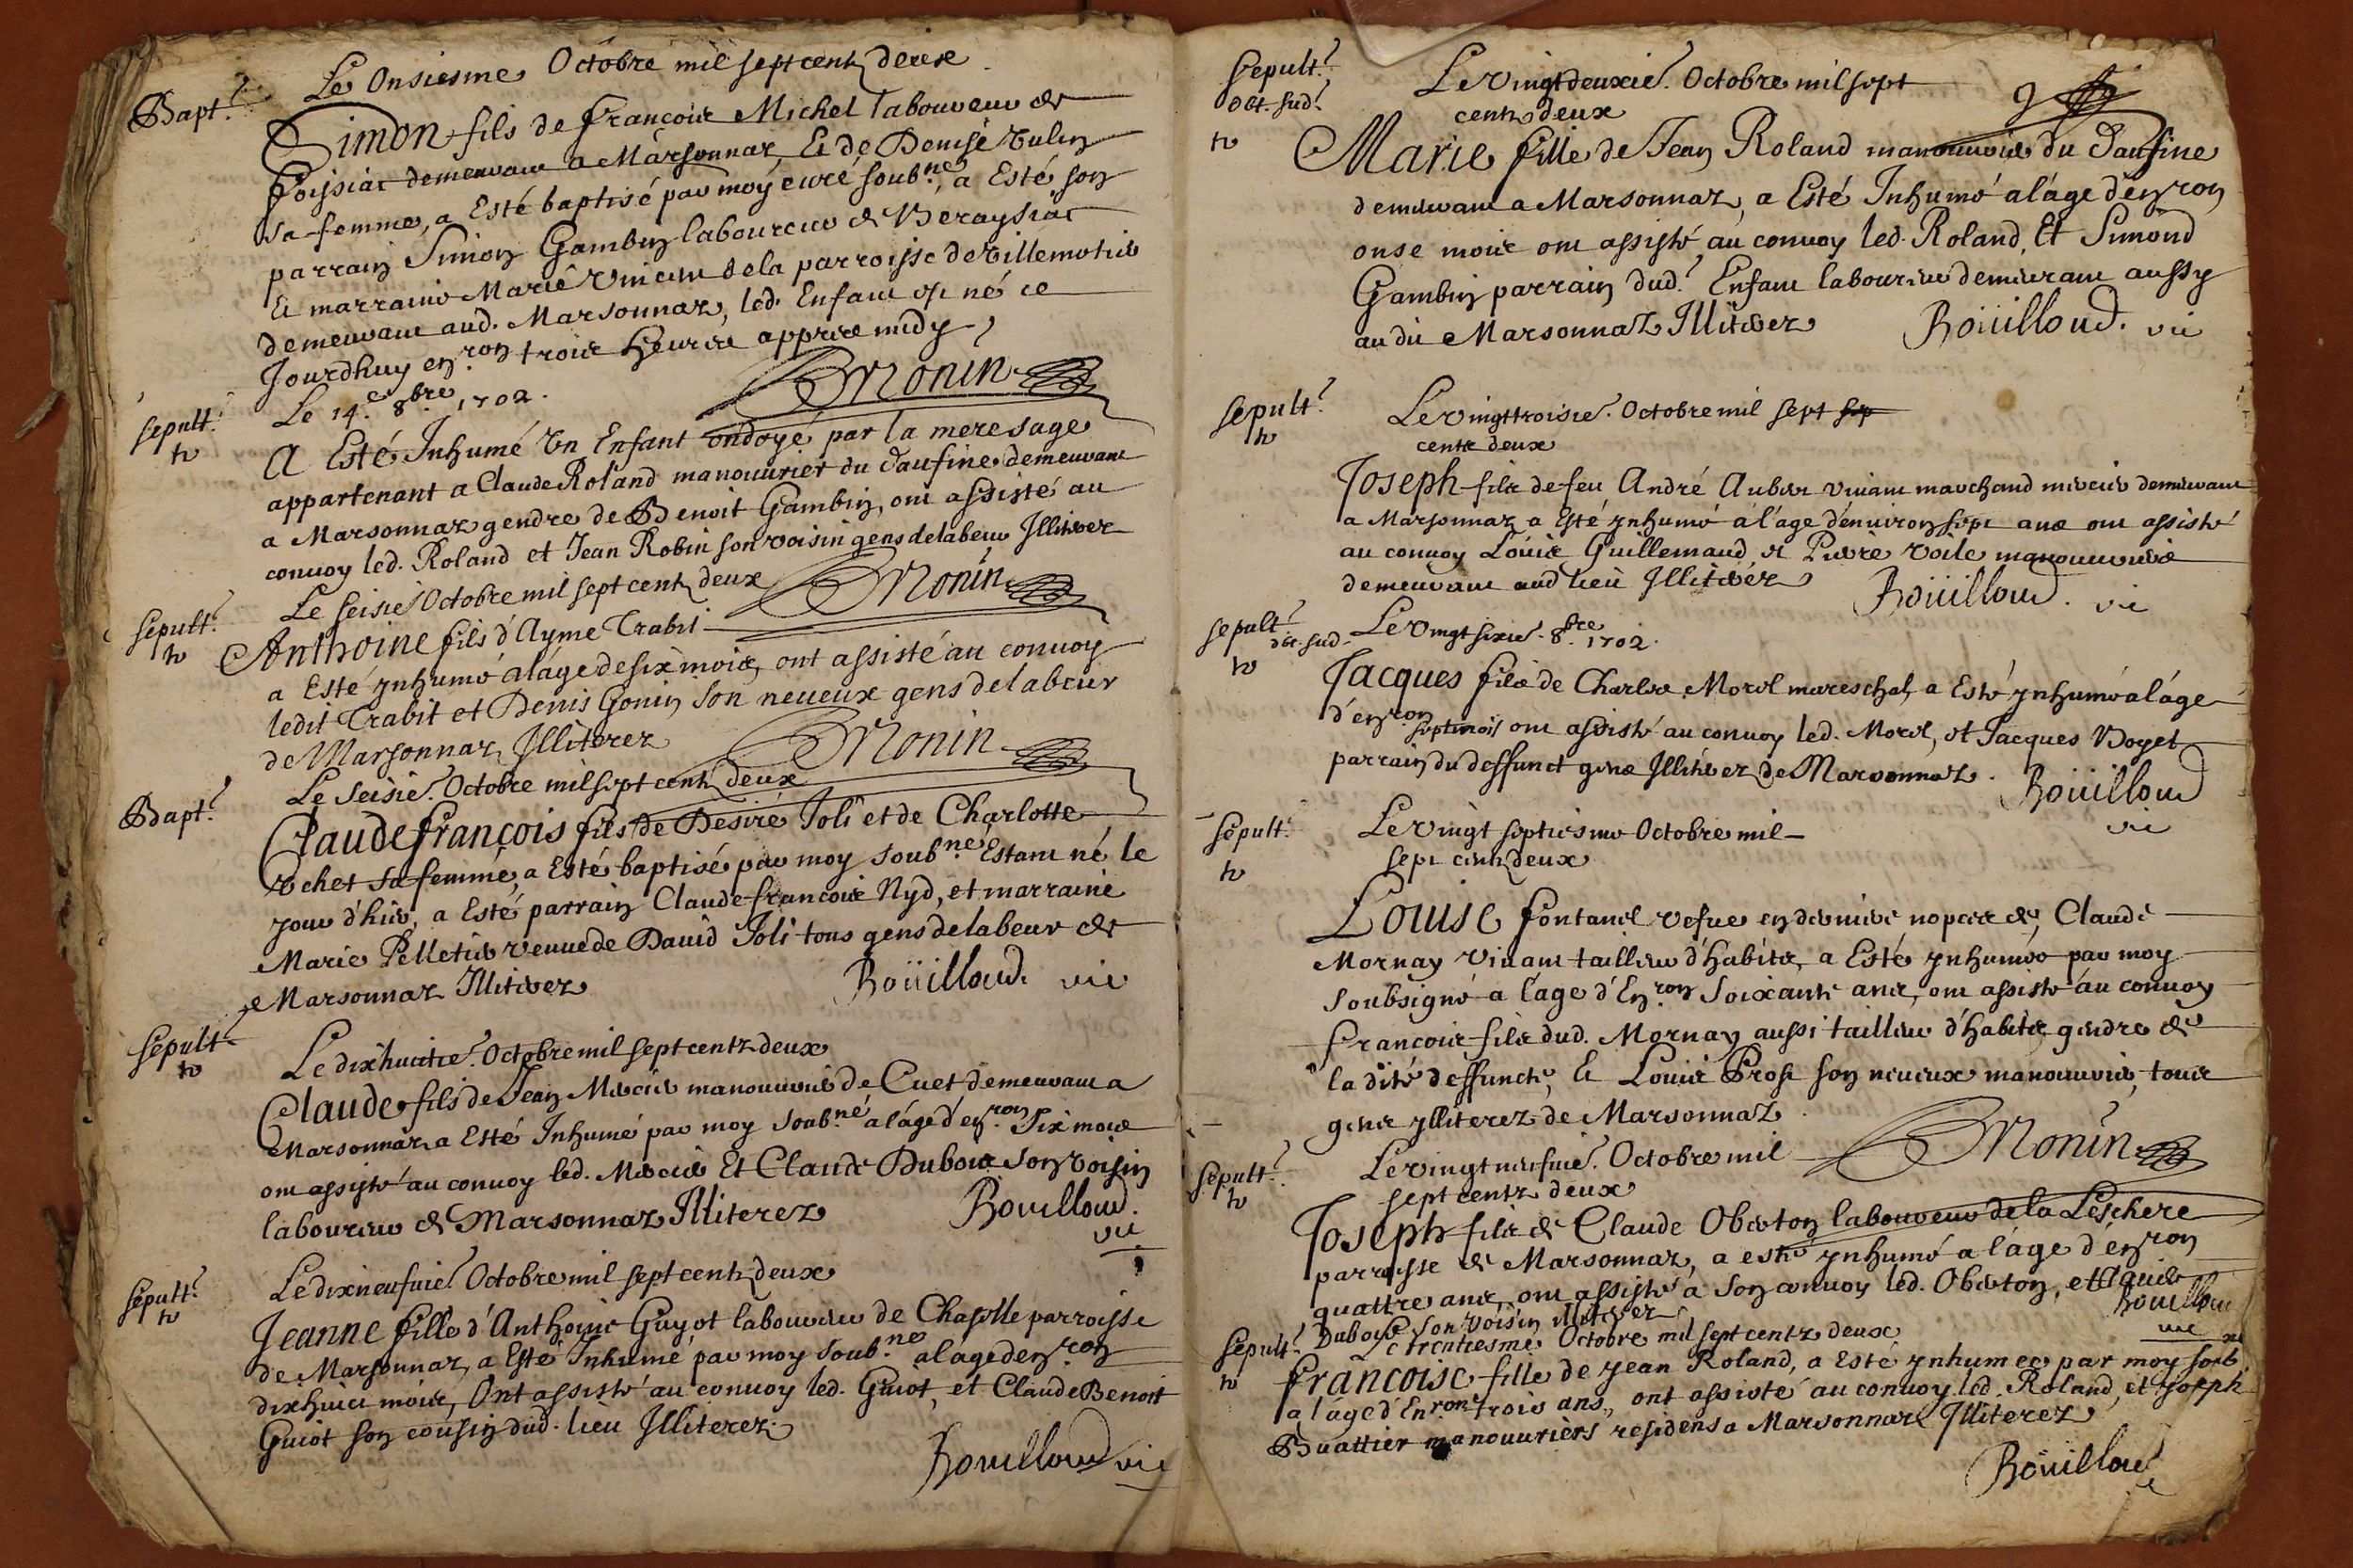 Le Onsiesme Octobre mil sept cent deux
Bapt.
Simon fils de francois Michel laboureur de
foissiat demeurant a Marsonnaz, Et de Denise Vulin
sa femme, a Esté baptisé par moy curé soub.né, a Esté son
parrain Simon Gambin laboureur de Veraysiat
Et marraine Marie Vincent dela parroisse de Villemotier
demeurant aud. Marsonnaz, led. Enfant est né ce
Jourdhuy en.ron trois heures apprès midy
Monin
Sepult.
Le 14.e 8bre 1702.
A Esté Inhumé Vn Enfant ondoyé par la mere sage
appartenant a Claude Roland manouurier du Daufine demeurant
a Marsonnaz gendre de Benoit Gambin, ont assisté au
conuoy led. Roland et Jean Robin son voisin gens delabeur Illiterez
Monin
Sepult.
Le seisie. Octobre mil sept centz deux
Anthoine fils d'Ayme Trabit
a Esté ynhumé alâge desix mois, ont assisté au conuoy
ledit Trabit et Denis Gonin son neueux gens delabeur
de Marsonnaz Illiterez
Monin
Bapt.
Le Seisie. Octobre mil sept centz deux
Claude françois fils de Desiré Joli et de Charlotte
Vchet sa femme, a Esté baptisé par moy soub.né Estant né le
jour d'hier, a Esté parrain Claude francois Nyd, et marraine
Marie Pelletier veuue de Dauid Joli tous gens delabeur de
Marsonnaz Illiterez
Boüilloud. vic
Sepult.
Le dixhuictie. Octobre mil sept centz deux
Claude fils de Jean Mercier manouurier de Cuet demeurant a
Marsonnaz a Esté Inhumé par moy soub.né alâge d'en.ron Six mois
ont assisté au conuoy led. Mercier Et Claude Dubois son voisin
laboureur de Marsonnaz Illiterez
Bouilloud.
vic
Sepult.
Le dixneufuie. Octobre mil sept centz deux
Jeanne fille d'Anthoine Guyot laboureur de Chapelle parroisse
de Marsonnaz, a Esté Inhumé par moy soub.né alage den.ron
dixhuict mois, Ont assisté au conuoy led. Guiot, et Claude Benoit
Guiot son cousin dud. lieu Illiterez.
Bouilloud vic
Sepult.
Oct. sud.
Le Vingtdeuxie. Octobre mil sept
centz deux
9
Marie fille de Jean Roland manouurier du Daufine
demeurant a Marsonnaz, a Esté Inhumé alâge d'en.ron
onse mois ont assisté au conuoy led. Roland, Et Simond
Gambin parrain dud. Enfant laboureur demeurant aussy
audit Marsonnaz Illiterez
Boüilloud. vic
Sepult.
Le vingttroisie. Octobre mil sept sep
centz deux
Joseph fils de feu André Auber viuant marchand mercier demeurant
a Marsonnaz a Esté ynhumé a l'age d'enuiron sept ans ont assisté
au conuoy Louis Guillemaud et Pierre Voile manouuriers
demeurant aud lieu Illiterez
Boüilloud. vic
Sepult.
oct. sud.
Le Vingtsixie. 8.bre 1702.
Jacques fils de Charles Morel mareschal, a Esté ynhumé alâge
d'en.ron sept mois ont assisté au conuoy led. Morel, et Jacques Boyet
parrain du deffunct gens Illiterez de Marsonnaz.
Boüilloud
vic
Sepult.
Le Vingt septiesme Octobre mil
sept centz deux
Louise fontanel vefue en derniere nopces de, Claude
Mornay viuant tailleur d'habits, a Esté ynhumée par moy
soubsigné a l'age d'En.ron soixante ans, ont assisté au conuoy
francois fils dud. Mornay aussi tailleur d'habits gendre de
la dite deffuncte, Et Louis Prost son neueux manouurier, tous
gens ylliterez de Marsonnaz
Monin
Sepult.
Le vingtneufuie. Octobre mil
sept centz deux
Joseph fils de Claude Oberton laboureur de la Leschere
parroisse de Marsonnaz, a esté ynhumé a l'age d'en.ron
quattre ans, ont assisté à son conuoy led. Oberton, et Claude
Dubois son voisin illiterez
Bouilloud
vic
Sepult.
Le trentiesme Octobre mil sept centz deux
francoise fille de Jean Roland, a Esté ynhumée par moy soub.né
a l'age d'En.ron trois ans, ont assisté au conuoy led. Roland, et Joseph
Buattier manouuriers residens a Marsonnaz Illiterez
Boüilloud